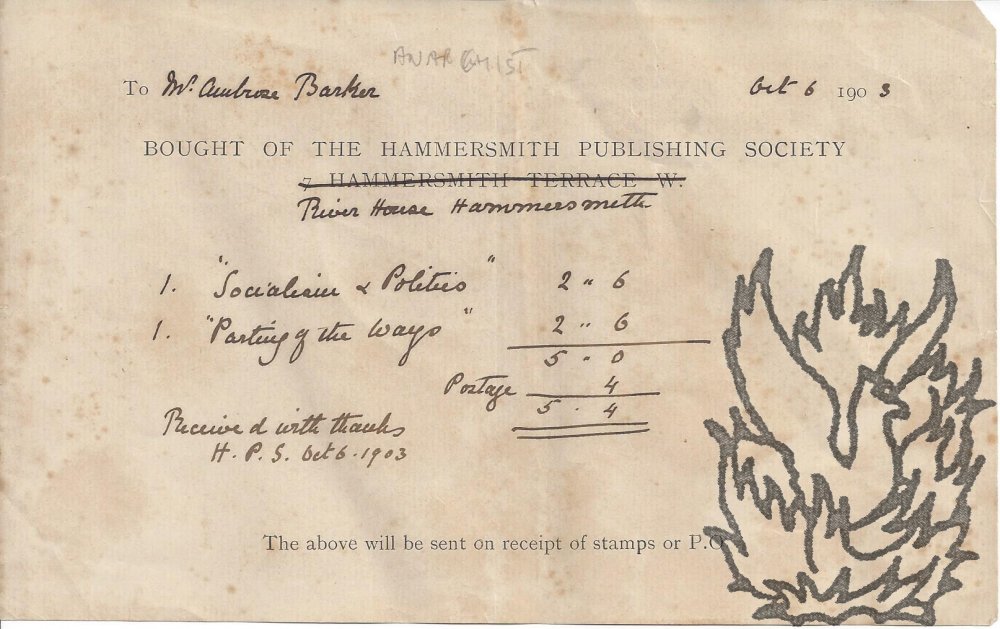 ANARCHIST
To Mr. Ambrose Barker Oct 6 1903
BOUGHT OF THE HAMMERSMITH PUBLISHING SOCIETY
7 HAMMERSMITH TERRACE W.
River House Hammersmith
1. "Socialism & Politics" 2 " 6
1. "Parting of the Ways" 2 " 6
5 " 0
Postage 4
5 . 4
Received with thanks
H. P. S. Oct 6. 1903
The above will be sent on receipt of stamps or P.O